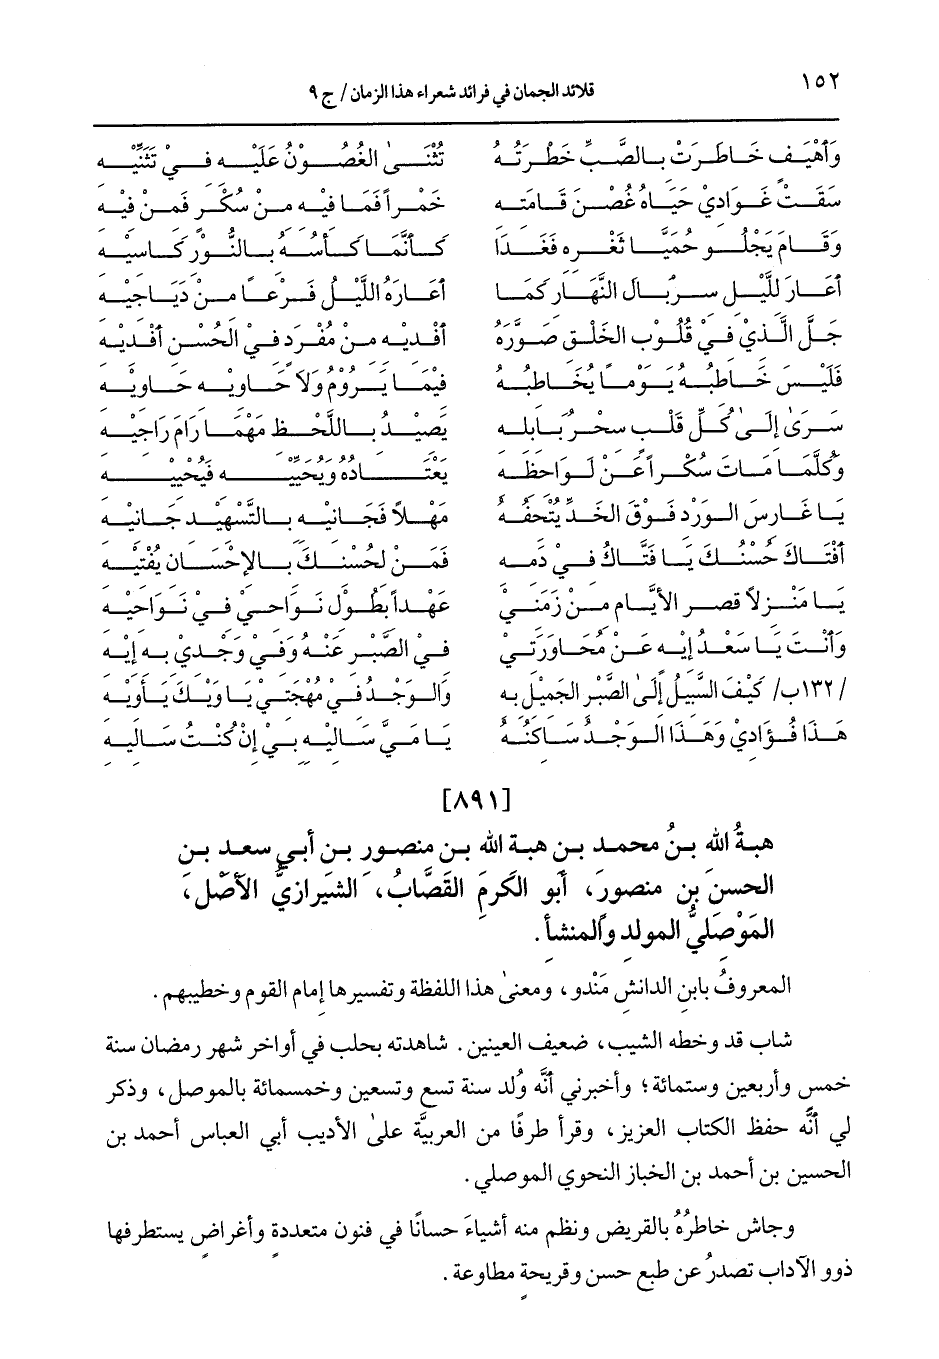 ١٥٢ قلائد الجمان في فرائد شعراء هذا الزمان / ج ٩
وَأَهْيَفٍ خَاطَرَتْ بِالصَّبِّ خَطْرَتُهُ تُثْنَى الغُصُونُ عَلَيْهِ فِي تَثَنِّيهِ
سَقَتْ غَوَادِيْ حَيَاهُ غُصْنَ قَامَتِهِ خَمْراً فَمَا فِيْهِ مِنْ سُكْرٍ فَمِنْ فِيْهِ
وَقَامَ يَجْلُو حُمَيَّا ثَغْرِهِ فَغَدَا كَأَنَّمَا كَأْسُهُ بِالنُّوْرِ كَاسِيْهِ
أَعَارَ لِلَّيْلِ سِرْبَالَ النَّهَارِ كَمَا أَعَارَهُ اللَّيْلُ فَرْعاً مِنْ دَيَاجِيْهِ
جَلَّ الَّذِيْ فِيْ قُلُوْبِ الخَلْقِ صَوَّرَهُ أَفْدِيْهِ مِنْ مُفْرَدٍ فِي الحُسْنِ أَفْدِيْهِ
فَلَيْسَ خَاطِبُهُ يَوْماً يُخَاطِبُهُ فِيْمَا يَرُوْمُ وَلاَ حَاوِيْهِ حَاوِيْهِ
سَرَى إِلَى كُلِّ قَلْبٍ سِحْرُ بَابِلِهِ يَصِيْدُ بِاللَّحْظِ مَهْمَا رَامَ رَاجِيْهِ
وَكُلَّمَا مَاتَ سُكْراً عَنْ لَوَاحِظِهِ يَعْتَادُهُ وَيُحَيِّيْهِ فَيُحْيِيْهِ
يَا غَارِسَ الوَرْدِ فَوْقَ الخَدِّ يُتْحِفُهُ مَهْلاً فَجَانِيْهِ بِالتَّسْهِيْدِ جَانِيْهِ
أَفْتَاكَ حُسْنُكَ يَا فَتَّاكُ فِيْ دَمِهِ فَمَنْ لِحُسْنِكَ بِالإِحْسَانِ يُفْتِيْهِ
يَا مَنْزِلاً قَصَّرَ الأَيَّامَ مِنْ زَمَنِيْ عَهْداً بِطُوْلِ نُوَاحِيْ فِيْ نَوَاحِيْهِ
وَأَنْتَ يَا سَعْدُ إِيْهِ عَنْ مُحَاوَرَتِيْ فِي الصَّبْرِ عَنْهُ وَفِيْ وَجْدِيْ بِهِ إِيْهِ
/١٣٢ب/ كَيْفَ السَّبِيْلُ إِلَى الصَّبْرِ الجَمِيْلِ بِهِ وَالوَجْدُ فِيْ مُهْجَتِيْ يَا وَيْكَ يَأْوِيْهِ
هَذَا فُؤَادِيْ وَهَذَا الوَجْدُ سَاكِنُهُ يَا مَيُّ سَالِيْهِ بِيْ إِنْ كُنْتِ سَالِيْهِ
[٨٩١]
هبةُ الله بنُ محمد بن هبة الله بن منصور بن أبي سعد بن
الحسن بن منصور، أبو الكرم القصَّابُ، الشيرازيُّ الأَصْل،
المَوْصليُّ المولد والمنشأ.
المعروفُ بابن الدانش مَنْدو، ومعنى هذا اللفظة وتفسيرها إمام القوم وخطيبهم.
شاب قد وخطه الشيب، ضعيف العينين. شاهدته بحلب في أواخر شهر رمضان سنة
خمس وأربعين وستمائة؛ وأخبرني أنَّه وُلد سنة تسع وتسعين وخمسمائة بالموصل، وذكر
لي أنَّه حفظ الكتاب العزيز، وقرأ طرفًا من العربيَّة على الأديب أبي العباس أحمد بن
الحسين بن أحمد بن الخباز النحوي الموصلي.
وجاش خاطرُهُ بالقريض ونظم منه أشياءَ حسانًا في فنون متعددةٍ وأغراضٍ يستطرفها
ذوو الآداب تصدرُ عن طبع حسن وقريحةٍ مطاوعة.